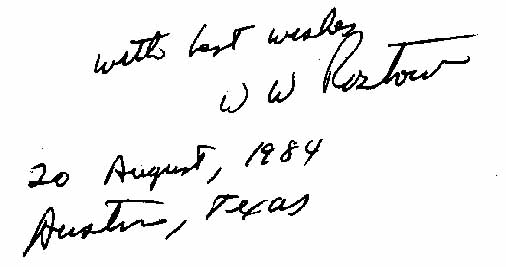 with best wishes
W W Rostow
20 August, 1984
Austin, Texas